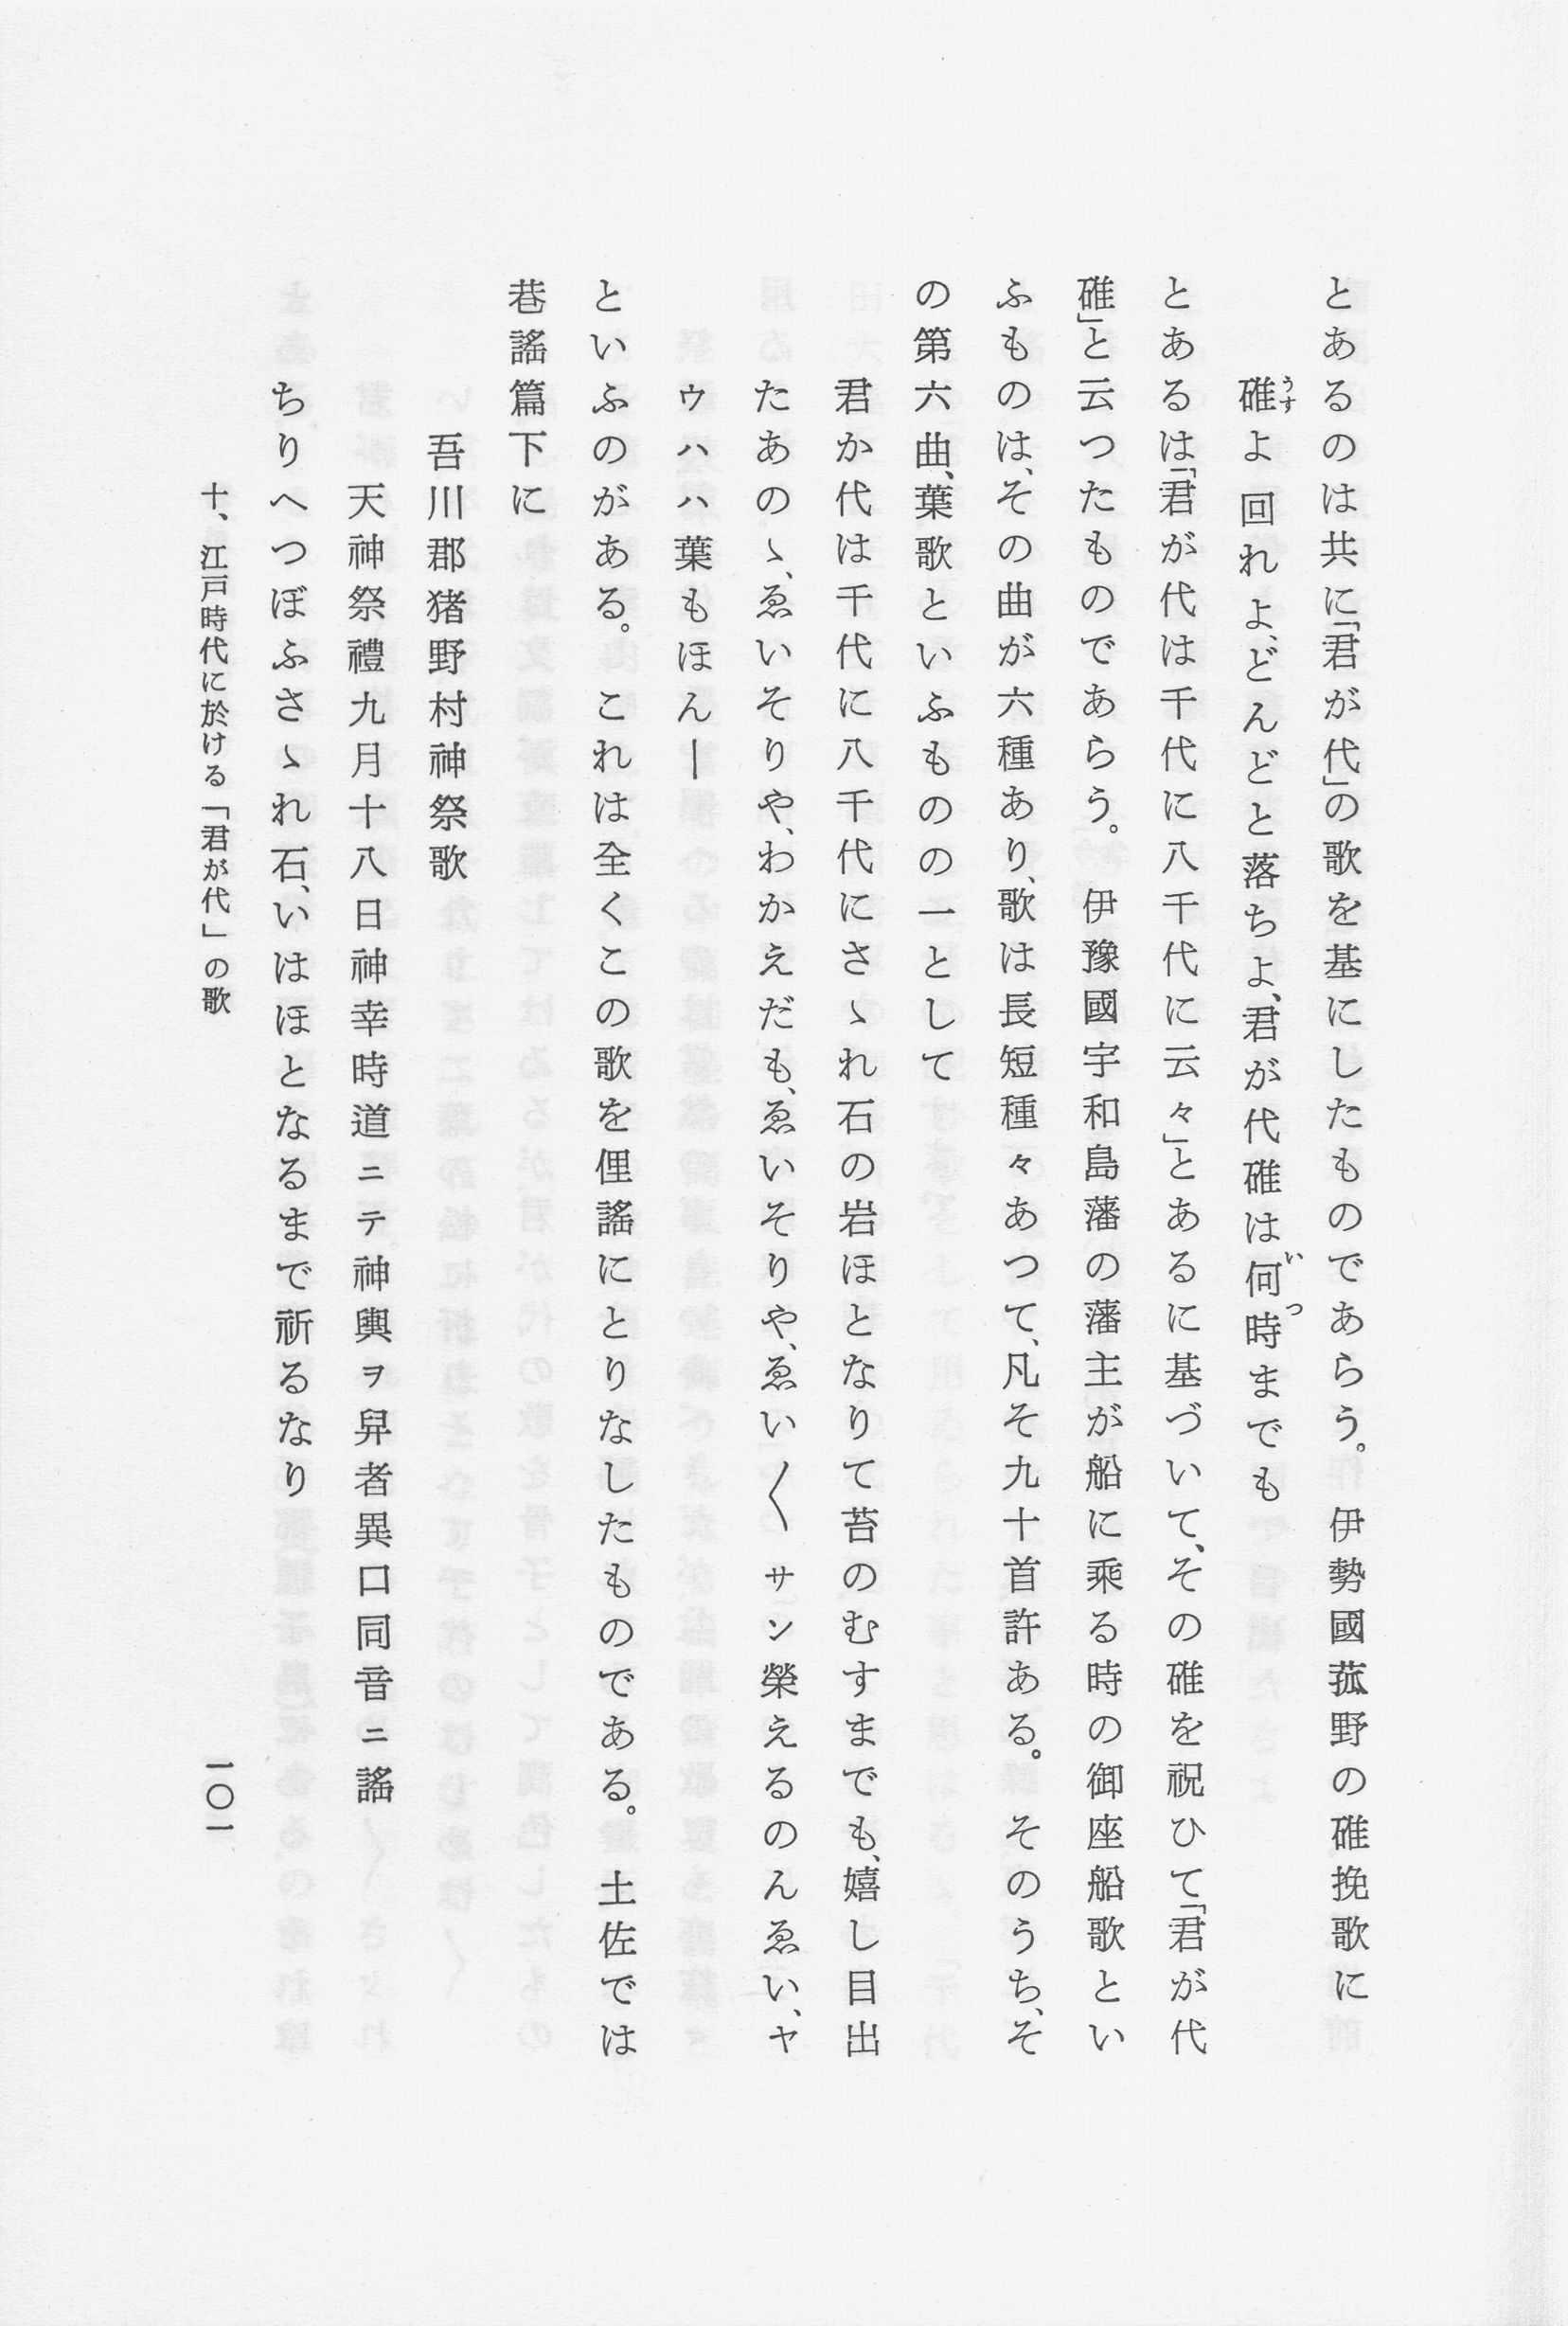 とあるのは共に「君が代」の歌を基にしたものであらう。　伊勢國菰野の碓挽歌に
碓よ回れよ、どんどと落ちよ、君が代碓は何時までも
うす
いつ
とあるは「君が代は千代に八千代に云々」とあるに基づいて、その碓を祝ひて「君が代
碓」と云つたものであらう。　伊豫國宇和島藩の藩主が船に乘る時の御座船歌とい
ふものは、その曲が六種あり、歌は長短種々あつて、凡そ九十首許ある。　そのうち、そ
の第六曲、葉歌といふものの一として
君か代は千代に八千代にさゝれ石の岩ほとなりて苔のむすまでも、嬉し目出
たあのゝ、ゑいそりや、わかえだも、ゑいそりや、ゑい〱サン榮えるのんゑい、ヤ
ウハハ葉もほんー
といふのがある。　これは全くこの歌を俚謠にとりなしたものである。　土佐では
巷謠篇下に
吾川郡猪野村神祭歌
天神祭禮九月十八日神幸時道ニテ神輿ヲ舁者異口同音ニ謠
ちりへつぼふさゝれ石、いはほとなるまで祈るなり
十、江戸時代に於ける「君が代」の歌
一〇一